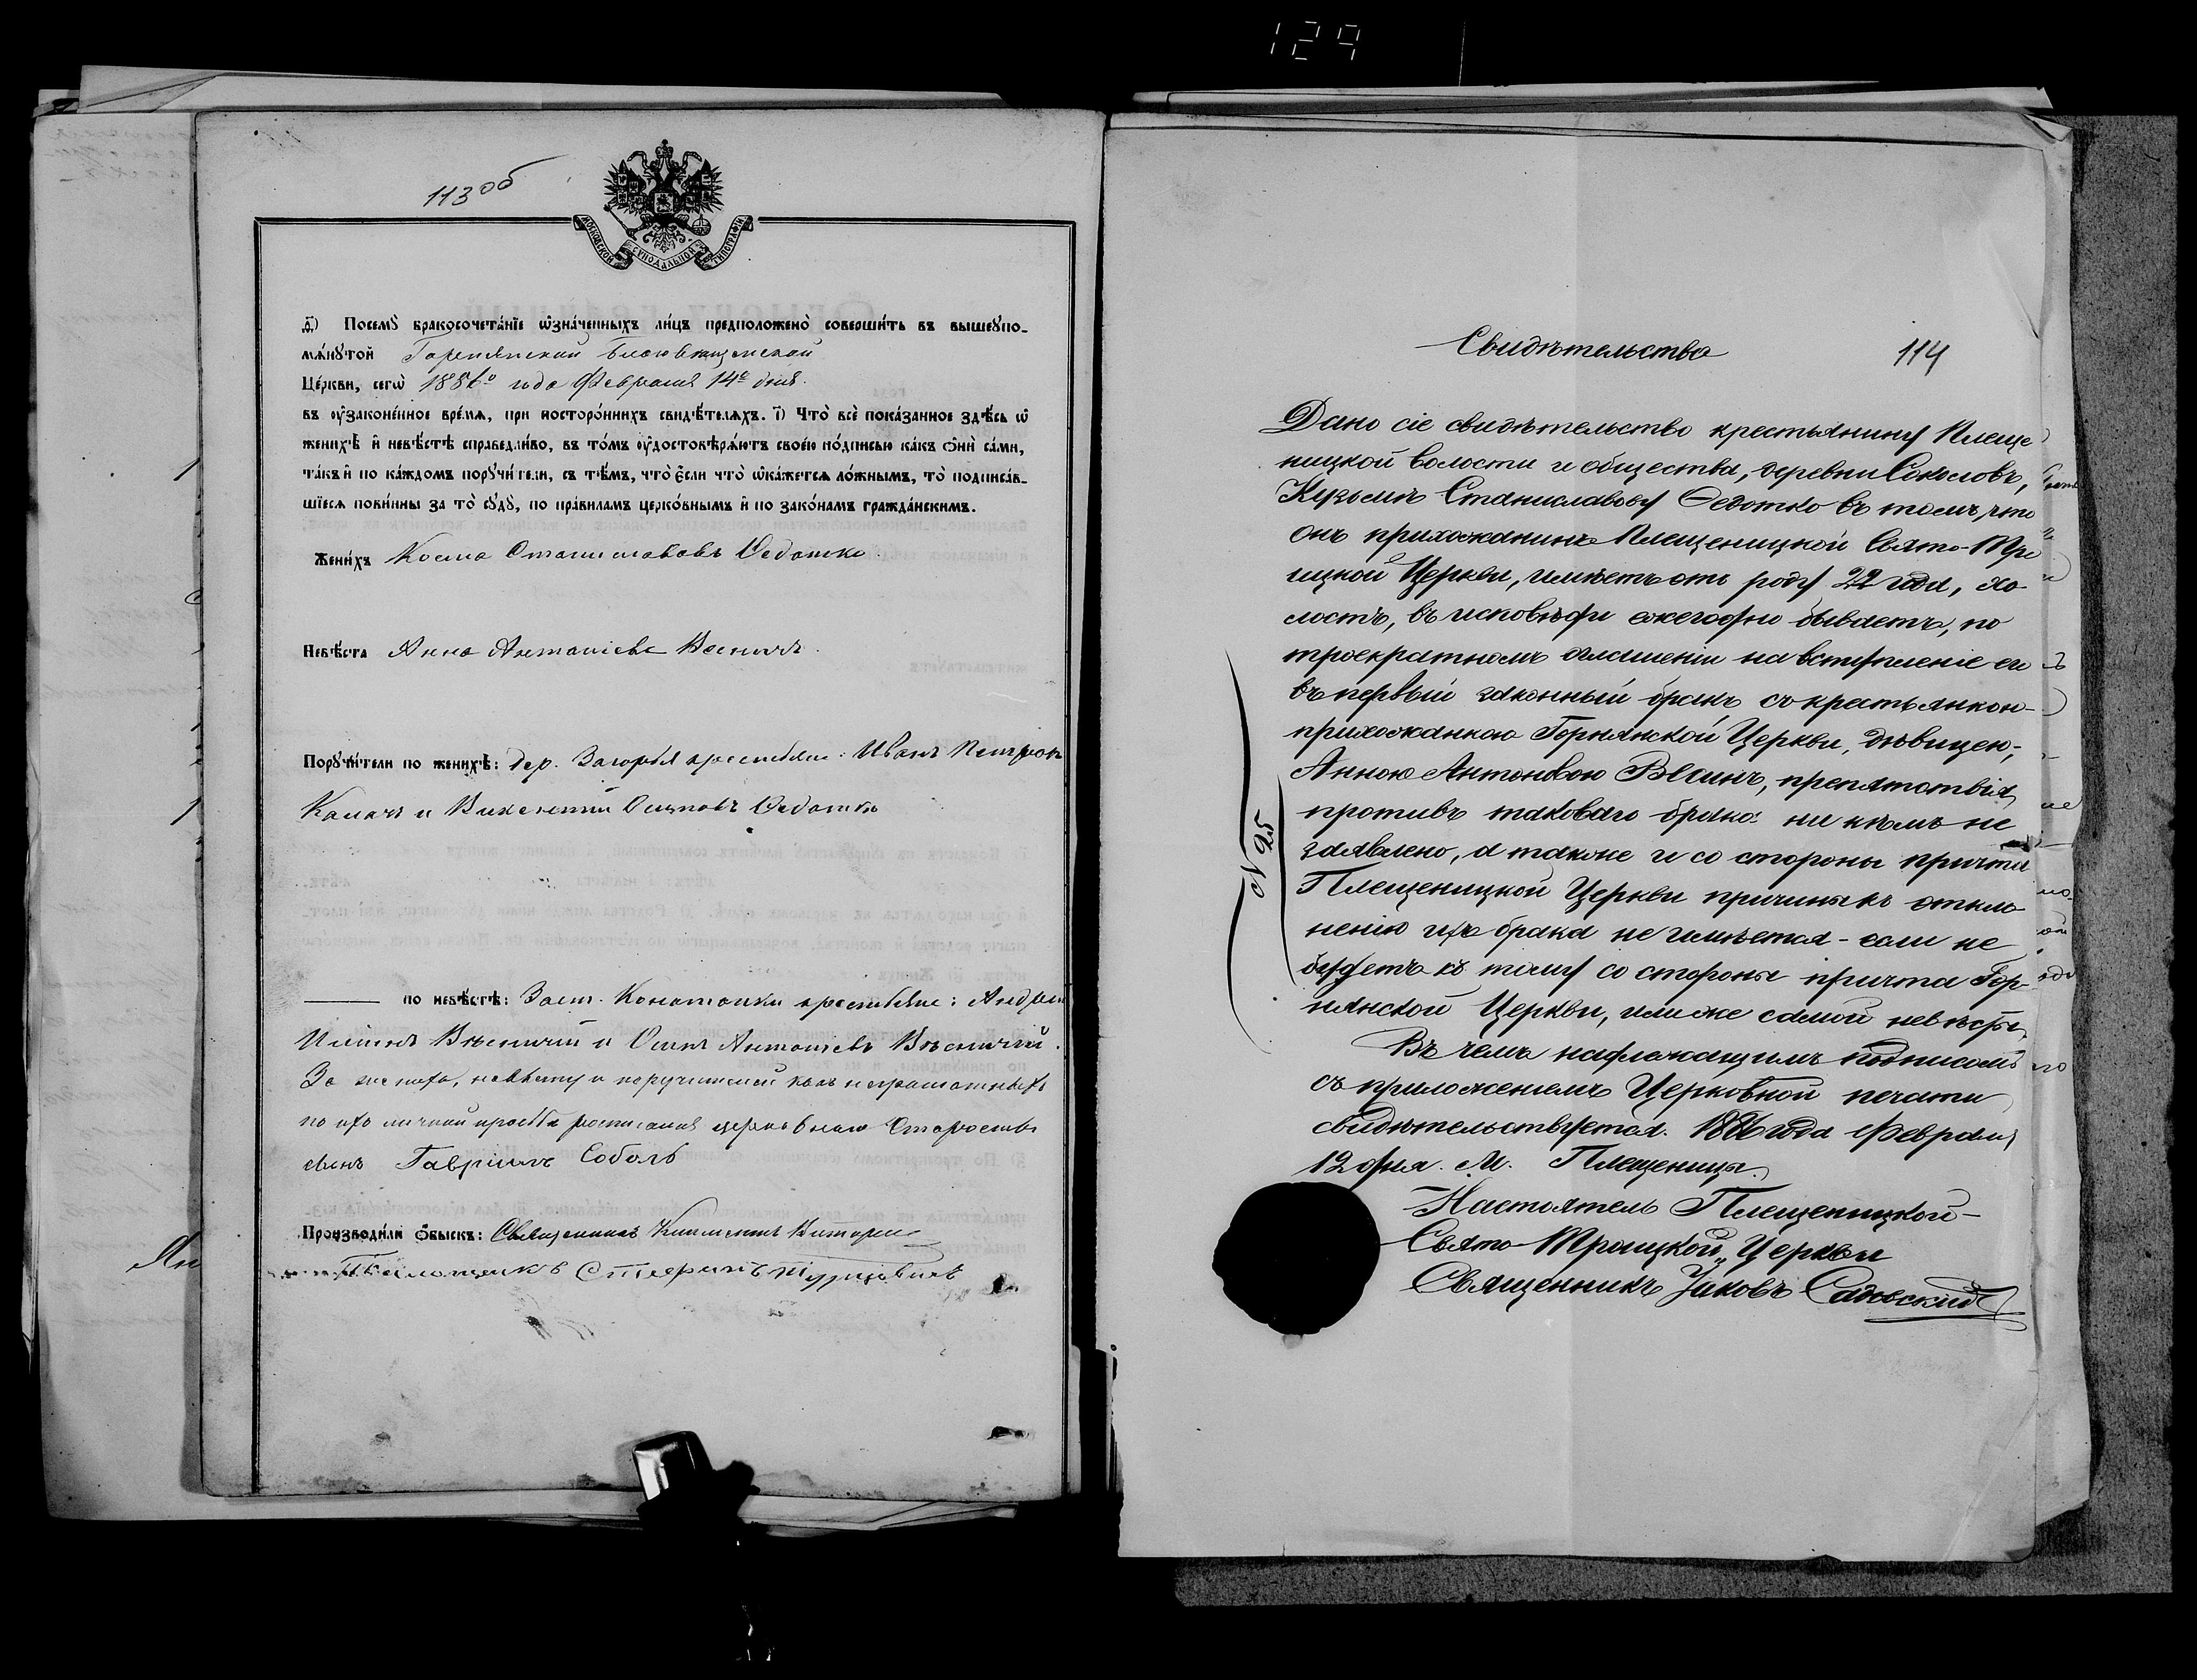 129
113 об
МОСКОВСКОЙ СѴНОДАЛЬНОЙ ТИПОГРАФІИ
д҃) Посемꙋ̀ бракосочета́нїе ѡ҆зна́ченныхъ ли́цъ предположено̀ соверши́ть въ вышеꙋпо-
мѧ́нꙋтой Горнянской Благовѣщенской
Це́ркви, сегѡ̀ 1886го года Февраля 14го дня.
въ ᲂу҆зако́ненное вре́мѧ, при посторо́ннихъ свидѣ́телѧхъ. і҃) Что̀ всѐ пока́занное здѣ́сь ѡ҆
женихѣ̀ и҆ невѣ́стѣ справедли́во, въ то́мъ ᲂу҆достовѣрѧ́ютъ свое́ю по́дписью ка́къ ѻ҆нѝ са́ми,
та́къ и҆ по ка́ждомъ порꙋчи́тели, съ тѣ́мъ, что̀ є҆́сли что̀ ѡ҆ка́жетсѧ ло́жнымъ, то̀ подписа́в-
шїесѧ пови́нны за то̀ сꙋдꙋ̀, по пра́виламъ церко́внымъ и҆ по зако́намъ гражда́нскимъ.
Жени́хъ Косма Станиславовъ Федотко.
Невѣ́ста Анна Антоніева
Порꙋчи́тели по женихѣ̀: дер. Загорья крестьяне: Иванъ Петровъ
и Викентій Осиповъ Федотко
по невѣ́стѣ: Заст. крестьяне: Андрей
и Осипъ Антоніевъ
За жениха, невѣсту и поручителей какъ неграмотныхъ
по ихъ личной просьбѣ росписался церковный Староста
Гавріилъ Соболь
Производи́ли ѻ҆́быскъ: Священникъ Климентъ
Псаломщикъ Стефанъ
Свидѣтельство
114
Дано сіе свидѣтельство крестьянину Плеще
ницкой волости и общества, деревни Соколовъ,
Кузьмѣ Станиславову Федотко въ томъ, что
онъ прихожанинъ Плещеницкой Свято-Тро
ицкой Церкви, имѣетъ отъ роду 22 года, хо-
лостъ, въ исповѣди ежегодно бываетъ, по
троекратномъ оглашеніи на вступленіе его
въ первый законный бракъ съ крестьянкою-
прихожанкою Горнянской Церкви, дѣвицею,
Анною Антоновою препятствія
противъ таковаго брака: ни кѣмъ не
заявлено, а также и со стороны причта
Плещеницкой Церкви причинъ къ откло-
ненію ихъ брака не имѣется - если не
будетъ къ тому со стороны причта Гор-
нянской Церкви, или же самой невѣсты.
Въ чемъ надлежащимъ подписомъ
съ приложеніемъ Церковной печати
свидѣтельствуется. 1886 года Февраля
12 дня. М. Плещеницы.
Настоятель Плещеницкой-
Свято-Троицкой Церкви
Священникъ Іаковъ Садовскій
N 25